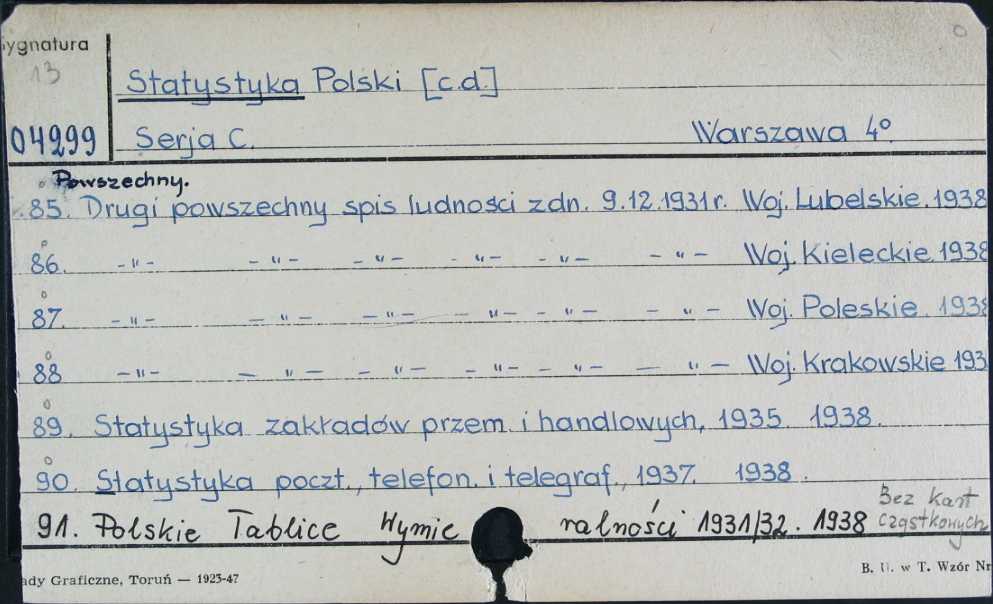 Sygnatura
13
Statystyka Polski [c.d.]
04299 Serja C. Warszawa 4°
Powszechny.
85. Drugi powszechny spis ludności z dn. 9.12.1931 r. Woj. Lubelskie. 1938
86. -"- -"- -"- -"- -"- -"- Woj. Kieleckie 1938
87. -"- -"- -"- -"- -"- -"- Woj. Poleskie 1938
88 -"- -"- -"- -"- -"- -"- Woj. Krakowskie 193
89. Statystyka zakładów przem. i handlowych, 1935 1938.
90. Statystyka poczt., telefon. i telegraf., 1937. 1938.
91. Polskie Tablice Wymieralności 1931/32. 1938 Bez kart cząstkowych
ady Graficzne, Toruń — 1925-47 B. U. w T. Wzór Nr